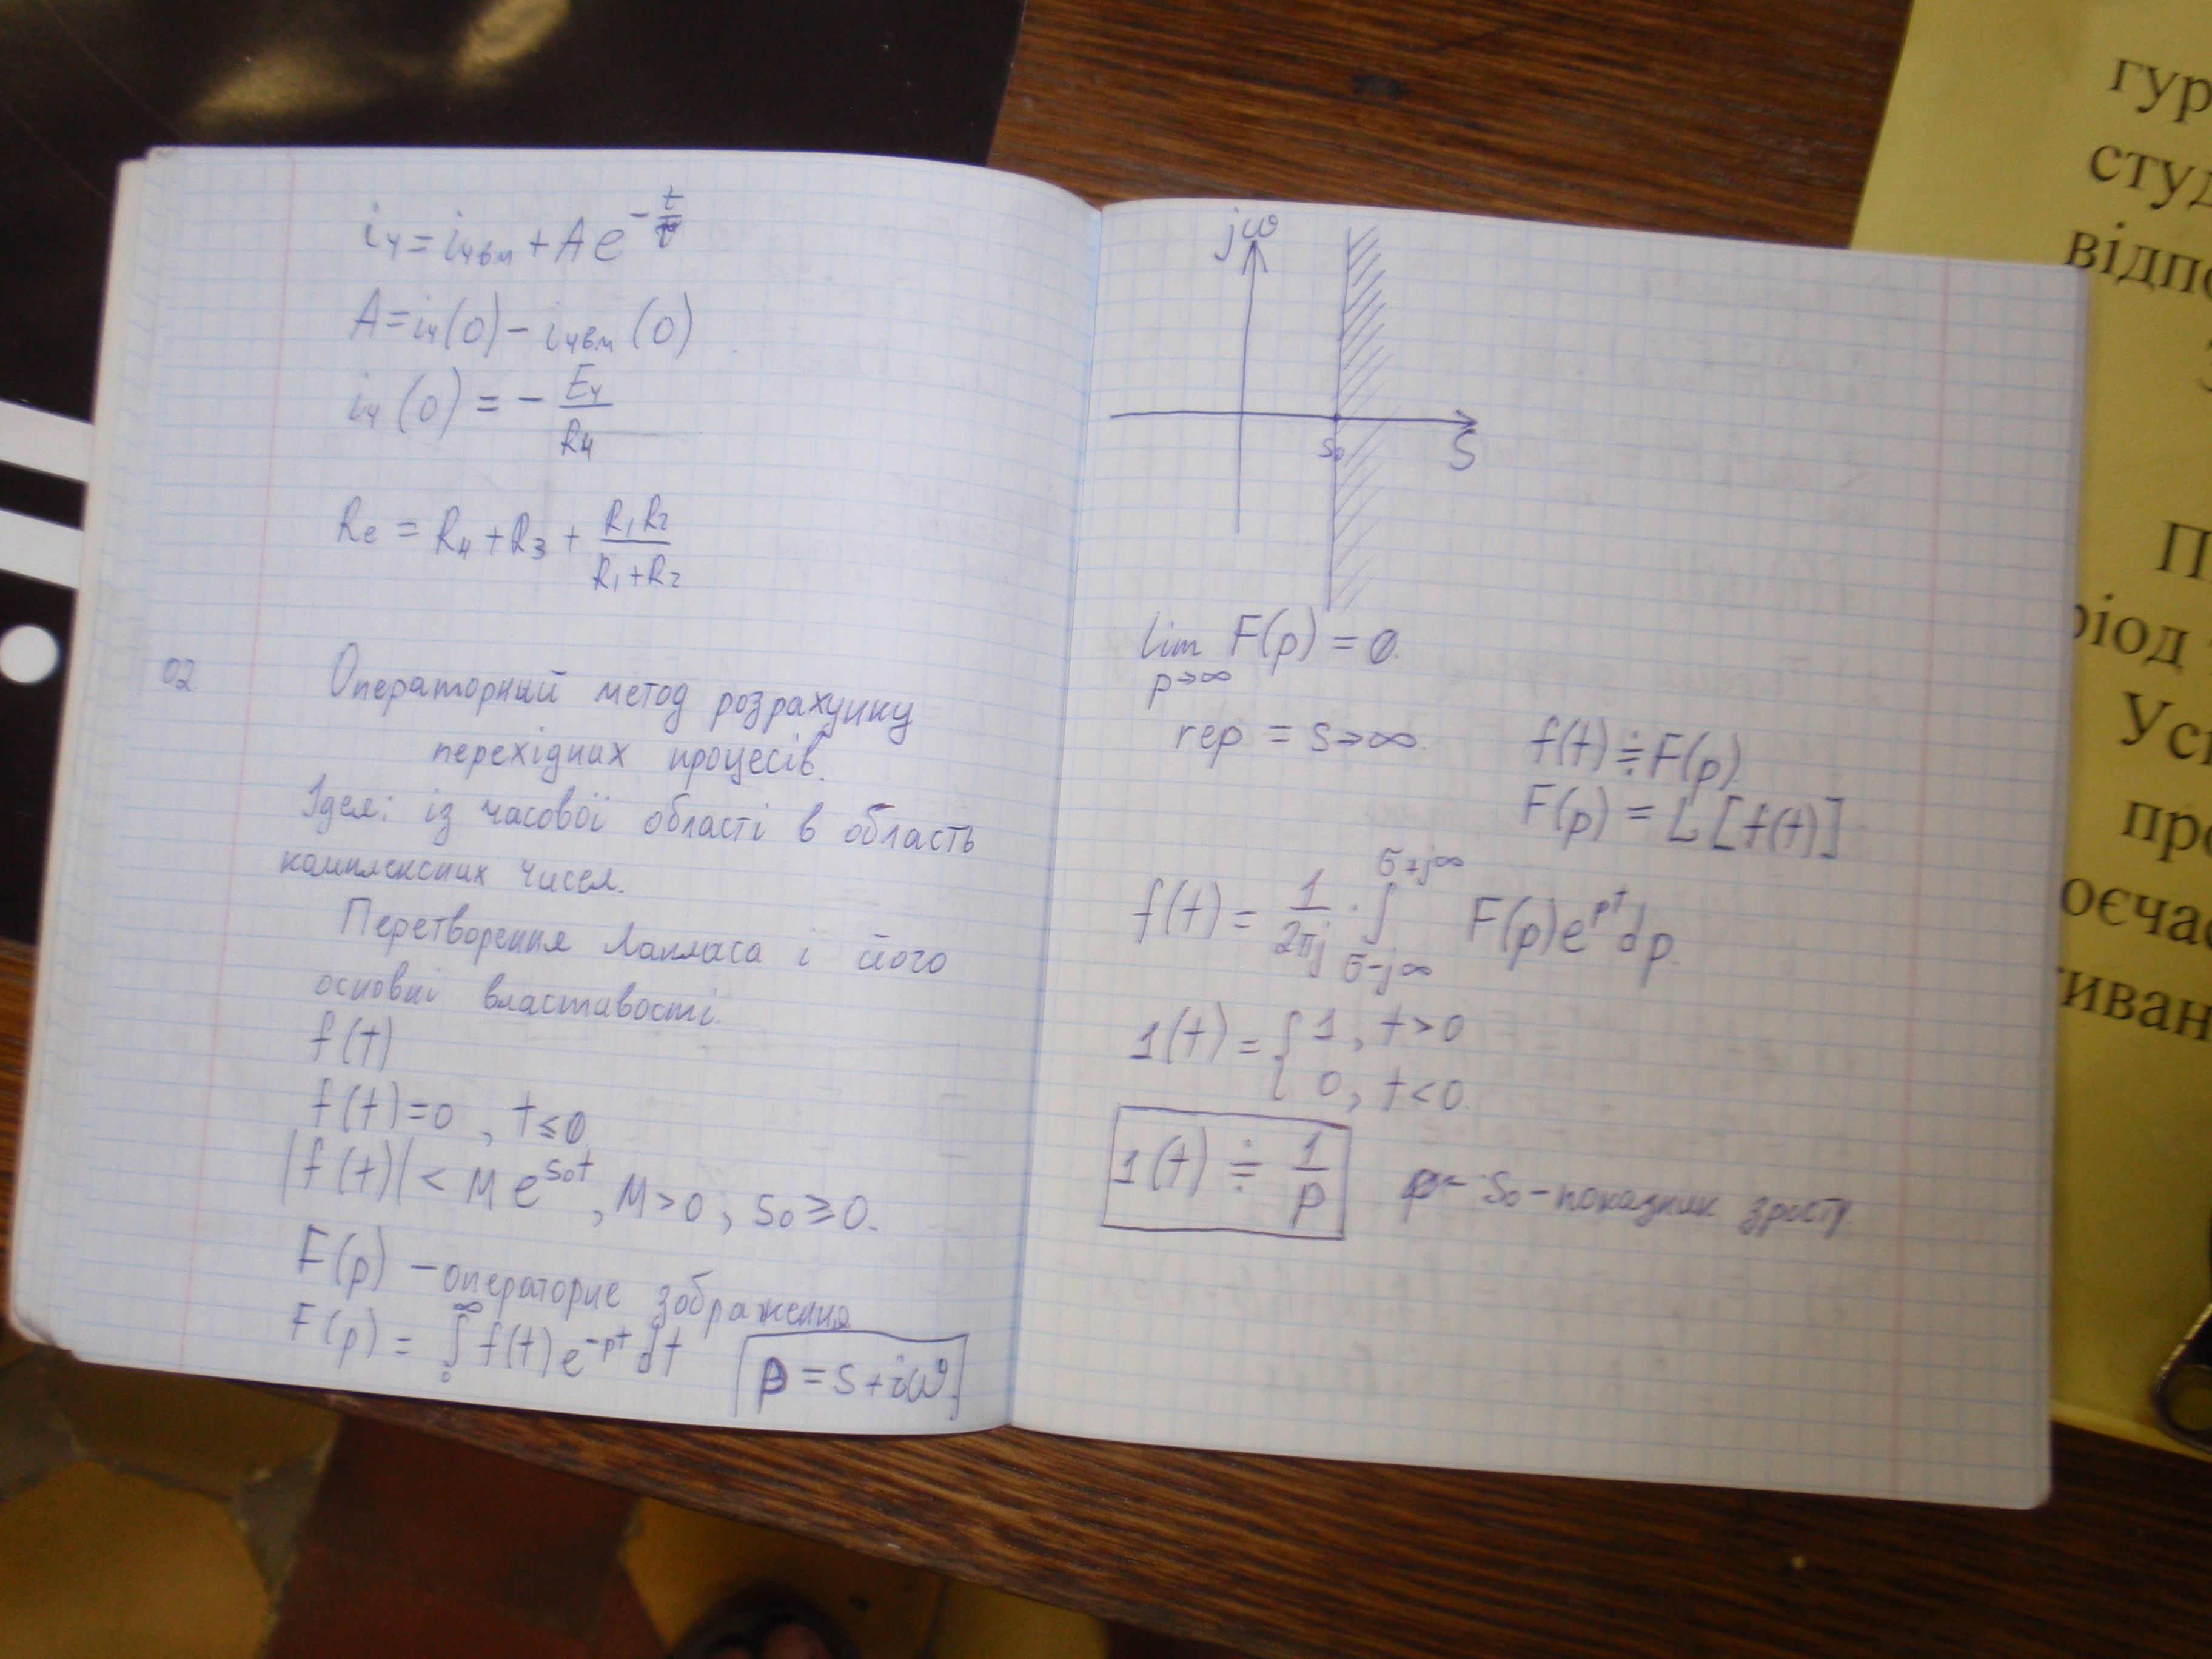 i₄ = i₄вм + A e^(-t/τ)
A = i₄(0) - i₄вм(0)
i₄(0) = - E₄/R₄
Rе = R₄ + R₃ + R₁R₂/(R₁+R₂)
02.
Операторний метод розрахунку
перехідних процесів.
Ідея: із часової області в область
комплексних чисел.
Перетворення Лапласа і його
основні властивості.
f(t)
f(t)=0, t≤0
|f(t)| < M e^(s₀t), M>0, s₀≥0.
F(p) – операторне зображення
F(p) = ∫₀^∞ f(t) e^(-pt) dt
p = s+iω
jω
s₀
S
lim F(p) = 0.
p→∞
rep = s→∞.
f(t) ≑ F(p).
F(p) = L[f(t)]
f(t) = 1/(2πj) · ∫_(σ-j∞)^(σ+j∞) F(p)e^(pt) dp.
1(t) = { 1, t>0
0, t<0.
1(t) ≑ 1/p
s₀ – показник зросту.
гур
сту
відпо
П
ріод
Ус
про
оєча
иван